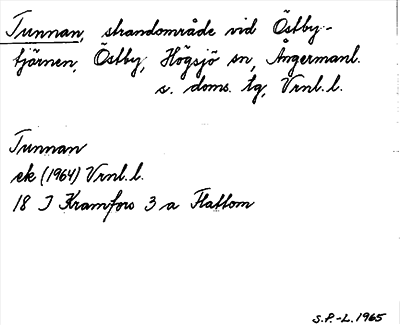 Tunnan, strandområde vid Östby-
tjärnen, Östby, Högsjö sn, Ångermanl.
s. doms. tg, Vrnl. l.
Tunnan
ek (1964) Vrnl. l.
18 J Kramfors 3 a Flattom
S.P.-L. 1965